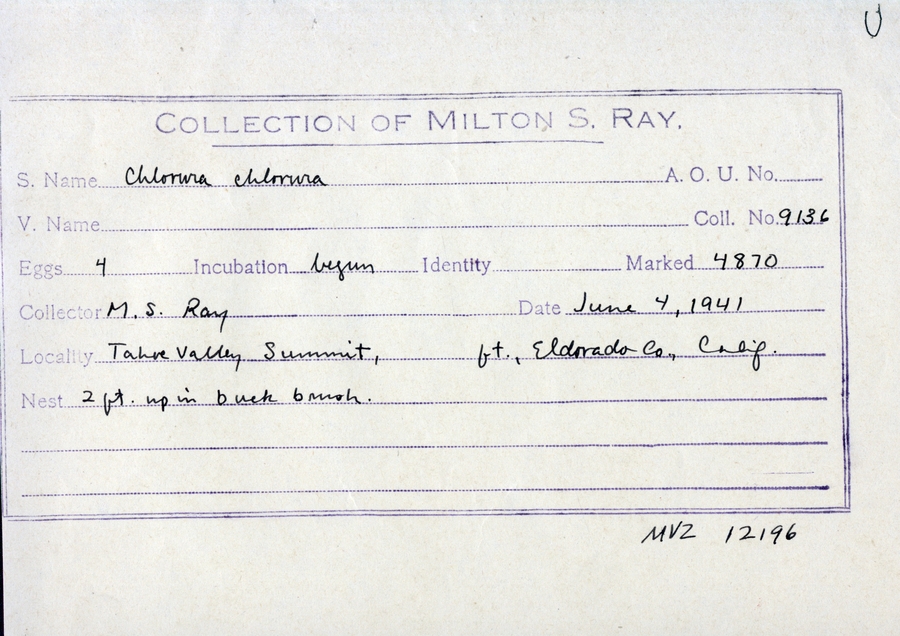 U
COLLECTION OF MILTON S. RAY.
S. Name Chlorura chlorura A. O. U. No.
V. Name Coll. No. 9136
Eggs 4 Incubation begun Identity Marked 4870
Collector M. S. Ray Date June 4, 1941
Locality Tahoe Valley Summit, ft., Eldorado Co., Calif.
Nest 2 ft. up in buck brush.
MVZ 12196